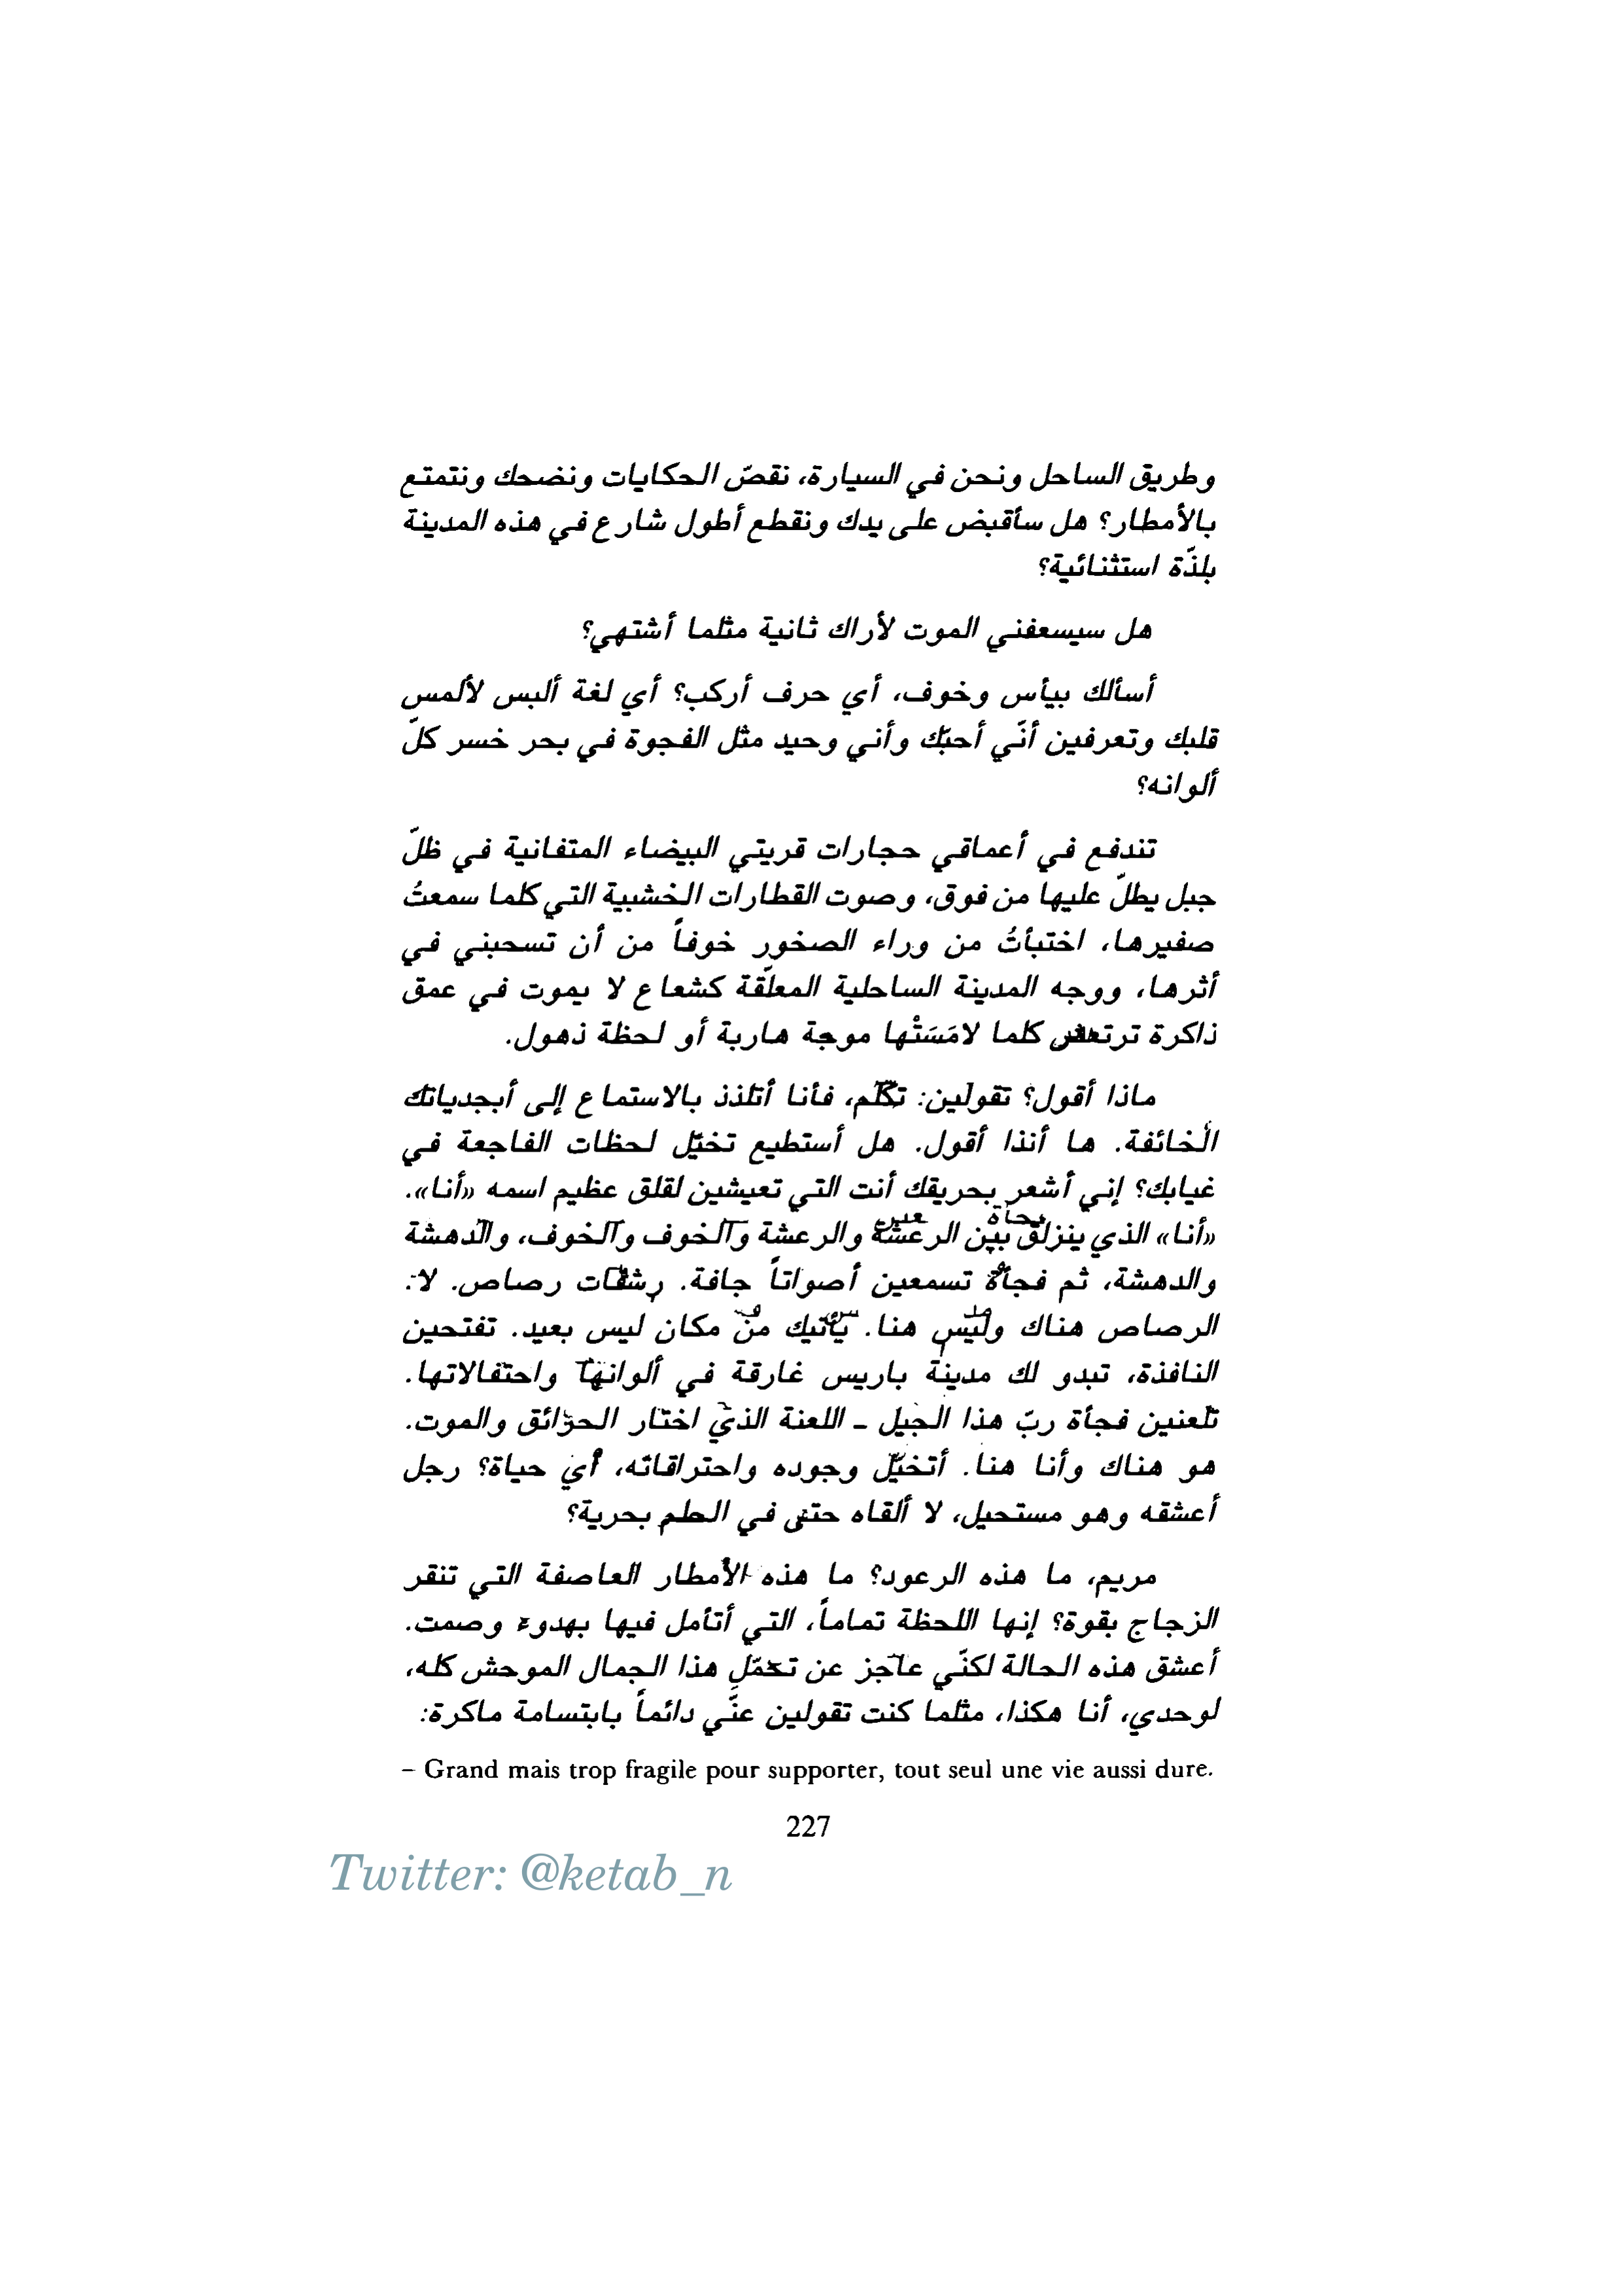 وطريق الساحل ونحن في السيارة، نقصّ الحكايات ونضحك ونتمتع
بالأمطار؟ هل سأقبض على يدك ونقطع أطول شارع في هذه المدينة
بلذّة استثنائية؟
هل سيسعفني الموت لأراك ثانية مثلما أشتهي؟
أسألك بيأس وخوف، أي حرف أركب؟ أي لغة ألبس لألمس
قلبك وتعرفين أنّي أحبّك وأني وحيد مثل الفجوة في بحر خسر كلّ
ألوانه؟
تندفع في أعماقي حجارات قريتي البيضاء المتفانية في ظلّ
جبل يطلّ عليها من فوق، وصوت القطارات الخشبية التي كلما سمعتُ
صفيرها، اختبأتُ من وراء الصخور خوفاً من أن تسحبني في
أثرها، ووجه المدينة الساحلية المعلّقة كشعاع لا يموت في عمق
ذاكرة ترتعش كلما لامَسَتْها موجة هاربة أو لحظة ذهول.
ماذا أقول؟ تقولين: تكلّم، فأنا أتلذذ بالاستماع إلى أبجدياتك
الخائفة. ها أنذا أقول. هل أستطيع تخيّل لحظات الفاجعة في
غيابك؟ إني أشعر بحريقك أنت التي تعيشين لقلق عظيم اسمه «أنا».
«أنا» الذي ينزلق بين الرعشة والرعشة والخوف والخوف، والدهشة
والدهشة، ثم فجأة تسمعين أصواتاً جافة. رشقات رصاص. لا.
الرصاص هناك وليس هنا. يأتيك من مكان ليس بعيد. تفتحين
النافذة، تبدو لك مدينة باريس غارقة في ألوانها واحتفالاتها.
تلعنين فجأة ربّ هذا الجيل ـ اللعنة الذي اختار الحرائق والموت.
هو هناك وأنا هنا. أتخيّل وجوده واحتراقاته، أي حياة؟ رجل
أعشقه وهو مستحيل، لا ألقاه حتى في الحلم بحرية؟
مريم، ما هذه الرعود؟ ما هذه الأمطار العاصفة التي تنقر
الزجاج بقوة؟ إنها اللحظة تماماً، التي أتأمل فيها بهدوء وصمت.
أعشق هذه الحالة لكنّي عاجز عن تحمّل هذا الجمال الموحش كله،
لوحدي، أنا هكذا، مثلما كنت تقولين عنّي دائماً بابتسامة ماكرة:
– Grand mais trop fragile pour supporter, tout seul une vie aussi dure.
227
Twitter: @ketab_n